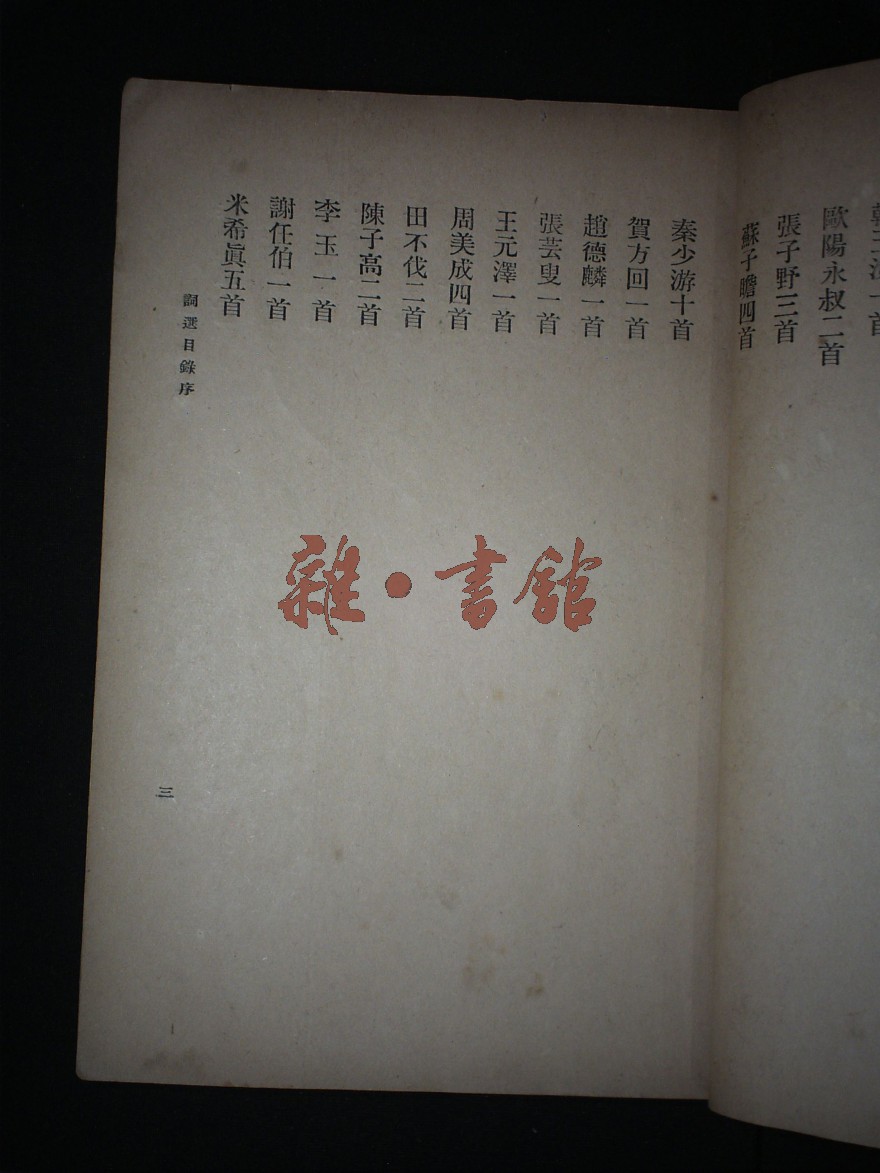 歐陽永叔二首
張子野三首
蘇子瞻四首
秦少游十首
賀方回一首
趙德麟一首
張芸叟一首
王元澤一首
周美成四首
田不伐二首
陳子高二首
李玉一首
謝任伯一首
米希眞五首
詞選目錄序
三
雜·書館